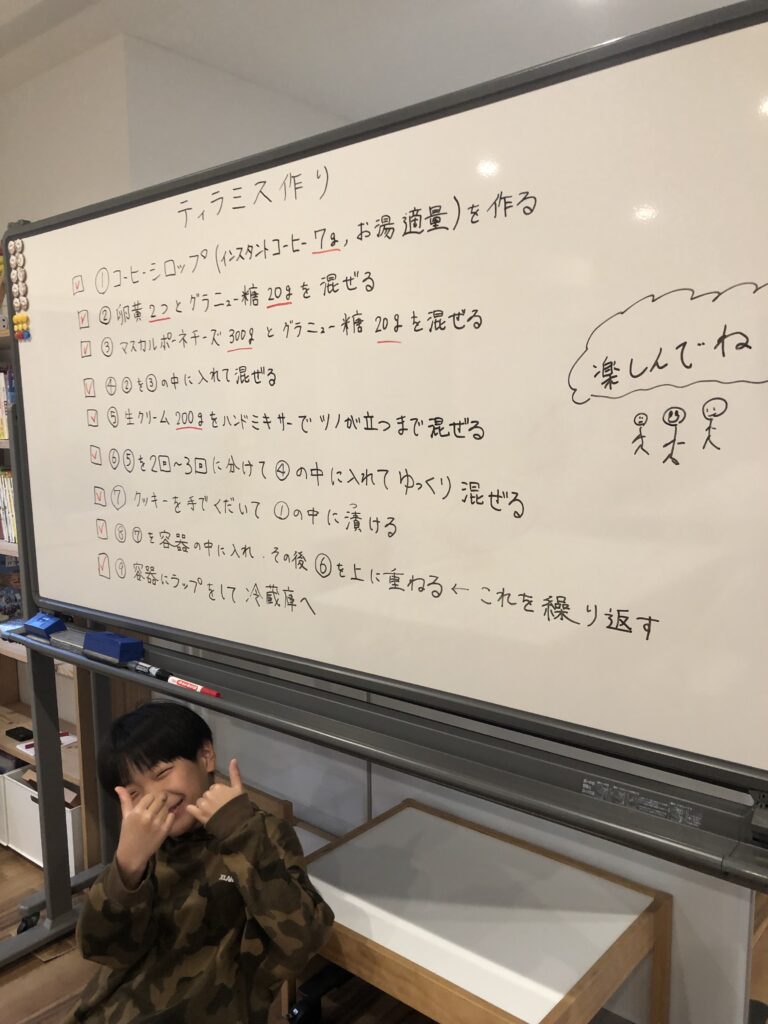 ティラミス作り
☑ ①コーヒーシロップ(インスタントコーヒー 7g, お湯適量)を作る
☑ ②卵黄2つとグラニュー糖20gを混ぜる
☑ ③マスカルポーネチーズ300gとグラニュー糖20gを混ぜる
☑ ④②を③の中に入れて混ぜる
☑ ⑤生クリーム200gをハンドミキサーでツノが立つまで混ぜる
☑ ⑥⑤を2回〜3回に分けて④の中に入れてゆっくり混ぜる
☑ ⑦クッキーを手でくだいて①の中に漬ける
つ
☑ ⑧⑦を容器の中に入れ、その後⑥を上に重ねる ← これを繰り返す
☑ ⑨容器にラップをして冷蔵庫へ
楽しんでね
XLARGE